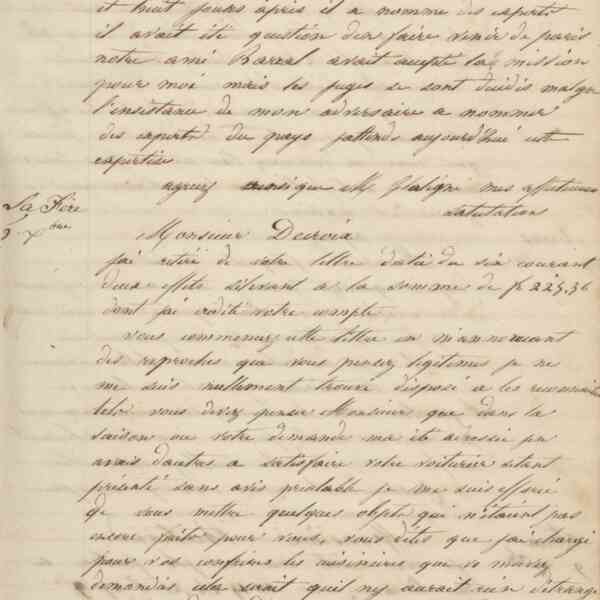 et huit jours après il a nommé des experts
il avait été question d'en faire venir de paris
notre ami Barral avait accepté la mission
pour moi mais les juges se sont décidés malgré
l'insistance de mon adversaire a nommer
des experts du pays j'attends aujourd'hui cette
expertise
agreez ainsi que M. mes affectueuses
salutations
La Fère
9 Xbre
Monsieur Decroix
j'ai retiré de votre lettre datée du six courant
deux effets s'élevant a la somme de fr 225,36
dont j'ai crédité votre compte
vous commencez cette lettre en m'annonçant
des reproches que vous pensez légitimes je ne
me suis nullement trouvé disposé a les reconnaitre
tels vous devez penser Monsieur que dans la
saison ou votre demande m'a été adressée j'en
avais d'autres a satisfaire votre voiturier s'étant
présenté sans avis préalable je me suis efforcé
de vous mettre quelques objets qui n'étaient pas
encore faits pour vous, vous dites que j'ai chargé
pour vos confrères les cuisinières que vous m'aviez
demandées cela serait qu'il n'y aurait rien d'étrange